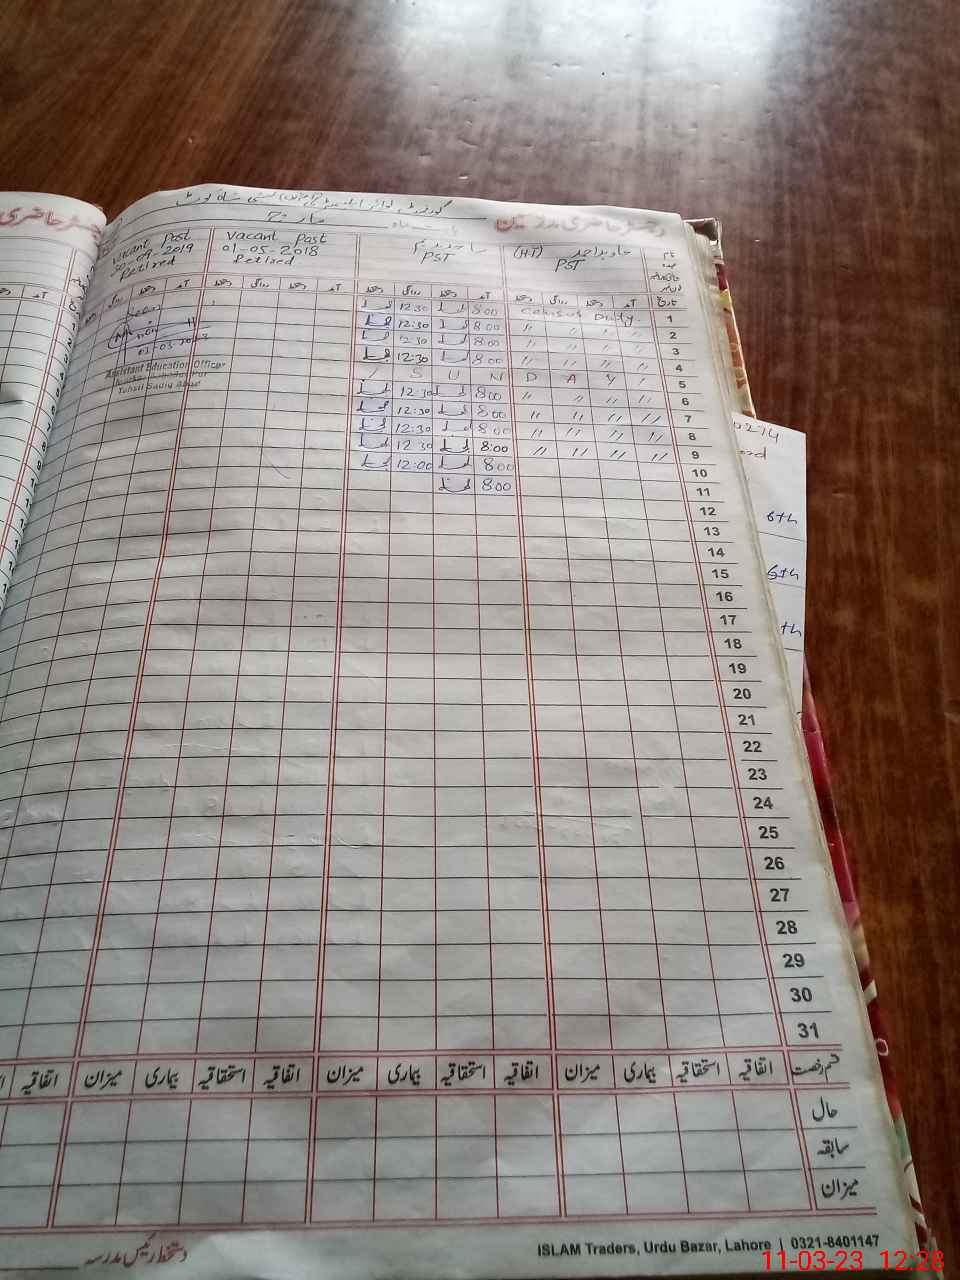 رجسٹر حاضری مدرسین
بابت ماہ مارچ
نام
عہدہ
(HT)
PST
PST
Vacant Post
01-05-2018
Retired
Vacant Post
30-09-2019
Retired
تاریخ آمد دستخط روانگی دستخط آمد دستخط روانگی دستخط آمد دستخط روانگی دستخط
1 Census Duty. 8:00 12:30
2 〃 〃 〃 〃 8:00 12:30
3 〃 〃 〃 〃 8:00 12:30
4 〃 〃 〃 〃 8:00 12:30
5 S U N D A Y
6 〃 〃 〃 8:00 12:30
7 〃 〃 〃 〃 8:00 12:30
8 〃 〃 〃 〃 8:00 12:30
9 〃 〃 〃 〃 8:00 12:30
10 8:00 12:00
11 8:00
12
13
14
15
16
17
18
19
20
21
22
23
24
25
26
27
28
29
30
31
Assistant Education Officer
قسم رخصت اتفاقیہ استحقاقیہ بیماری میزان اتفاقیہ استحقاقیہ بیماری میزان اتفاقیہ استحقاقیہ بیماری میزان اتفاقیہ
حال
سابقہ
میزان
دستخط رئیس مدرسہ
ISLAM Traders, Urdu Bazar, Lahore | 0321-8401147
0274
6th
5th
th
11-03-23 12:28